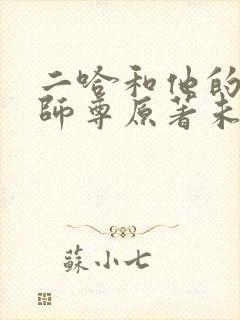 二哈和他的
師尊原著未
蘇小七